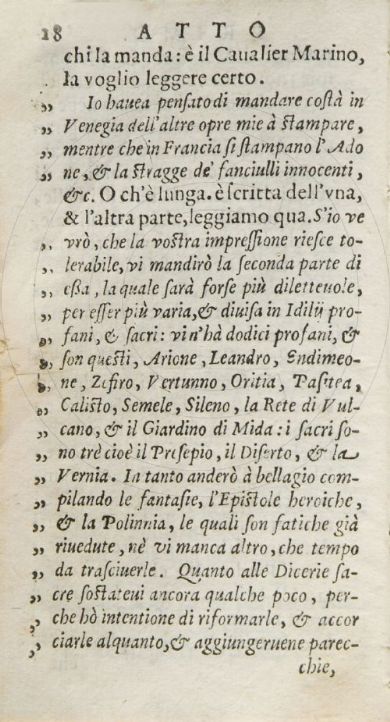 18 ATTO
chi la manda: è il Caualier Marino,
la voglio leggere certo.
„ Io hauea pensato di mandare costà in
„ Venegia dell'altre opre mie à stampare,
„ mentre che in Francia si stampano l'Ado
„ ne, & la stragge de' fanciulli innocenti,
„ &c. O ch'è lunga. è scritta dell'vna,
& l'altra parte, leggiamo qua. S'io ve
„ vrò, che la vostra impressione riesce to-
„ lerabile, vi mandirò la seconda parte di
„ essa, la quale sarà forse più dilettevole,
„ per esser più varia, & diuisa in Idilij pro-
„ fani, & sacri: vi n'hà dodici profani, &
„ son questi, Arione, Leandro, Endimeo-
„ ne, Zefiro, Vertunno, Oritia, Pasitea,
„ Calisto, Semele, Sileno, la Rete di Vul-
„ cano, & il Giardino di Mida: i sacri so-
„ no trè cioè il Presepio, il Diserto, & la
„ Vernia. In tanto anderò à bellagio com-
„ pilando le fantasie, l'Epistole heroiche,
„ & la Polinnia, le quali son fatiche già
„ riuedute, nè vi manca altro, che tempo
„ da trasciuerle. Quanto alle Dicerie sa-
„ cre sostateui ancora qualche poco, per-
„ che hò intentione di riformarle, & accor
„ ciarle alquanto, & aggiungeruene parec-
chie,